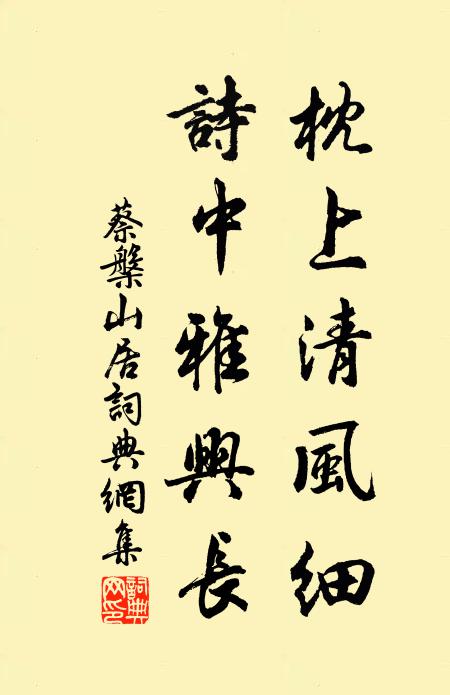 枕上清風細
詩中雅興長
蔡槃山居詞典網集
詞典網印